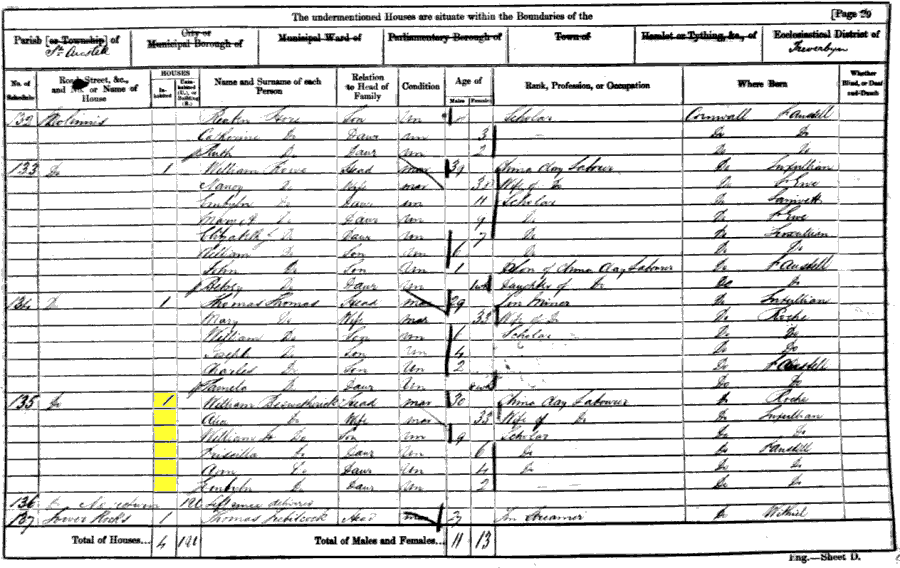 The undermentioned Houses are situate within the Boundaries of the [Page 29
Parish [or Township] of St. Austell
City or Municipal Borough of
Municipal Ward of
Parliamentary Borough of
Town of
Hamlet or Tything, &c., of
Ecclesiastical District of Treverbyn
No. of Schedule
Road, Street, &c., and No. or Name of House
HOUSES
Inhabited
Uninhabited (U.), or Building (B.)
Name and Surname of each Person
Relation to Head of Family
Condition
Age of
Males
Females
Rank, Profession, or Occupation
Where Born
Whether Blind, or Deaf-and-Dumb
132 Son Un Scholar Cornwall St Austell
Catherine Do Daur Un 3 Do Do
Ruth Do Daur Un 2 Do Do
133 Do 1 William Head mar 39 China Clay Labourer Do Luxullian
Nancy Do Wife mar 38 Wife of Do Do St Ewe
Emblyn Do Daur Un 11 Scholar Do
Do Daur Un 9 Do Do St Ewe
Elizabeth J Do Daur Un 7 Do Do Luxullian
William Do Son Un 6 Do Do Do
John Do Son Un 1 Son of China Clay Labourer Do St Austell
Betsy Do Daur Un Daughter of Do Do Do
134 Do 1 Thomas Thomas Head mar 29 Tin Miner Do Luxullian
Mary Do Wife mar 33 Wife of Do Do Roche
William Do Son Un Scholar Do Do
Joseph Do Son Un 4 Do Do
Charles Do Son Un 2 Do St Austell
Pamela Do Daur Un Do Do
135 Do 1 William Head mar 30 China Clay Labourer Do Roche
Ann Do Wife mar 33 Wife of Do Do Luxullian
William H Do Son Un 9 Scholar Do Do
Priscilla Do Daur Un 6 Do Do St Austell
Ann Do Daur Un 4 Do Do Do
Emblyn Do Daur Un 2 Do Do
136
137 Lower Rocks 1 Thomas Trebilcock Head mar Tin Streamer Do Withiel
Total of Houses... 4 Total of Males and Females... 11 13
Eng.—Sheet D.